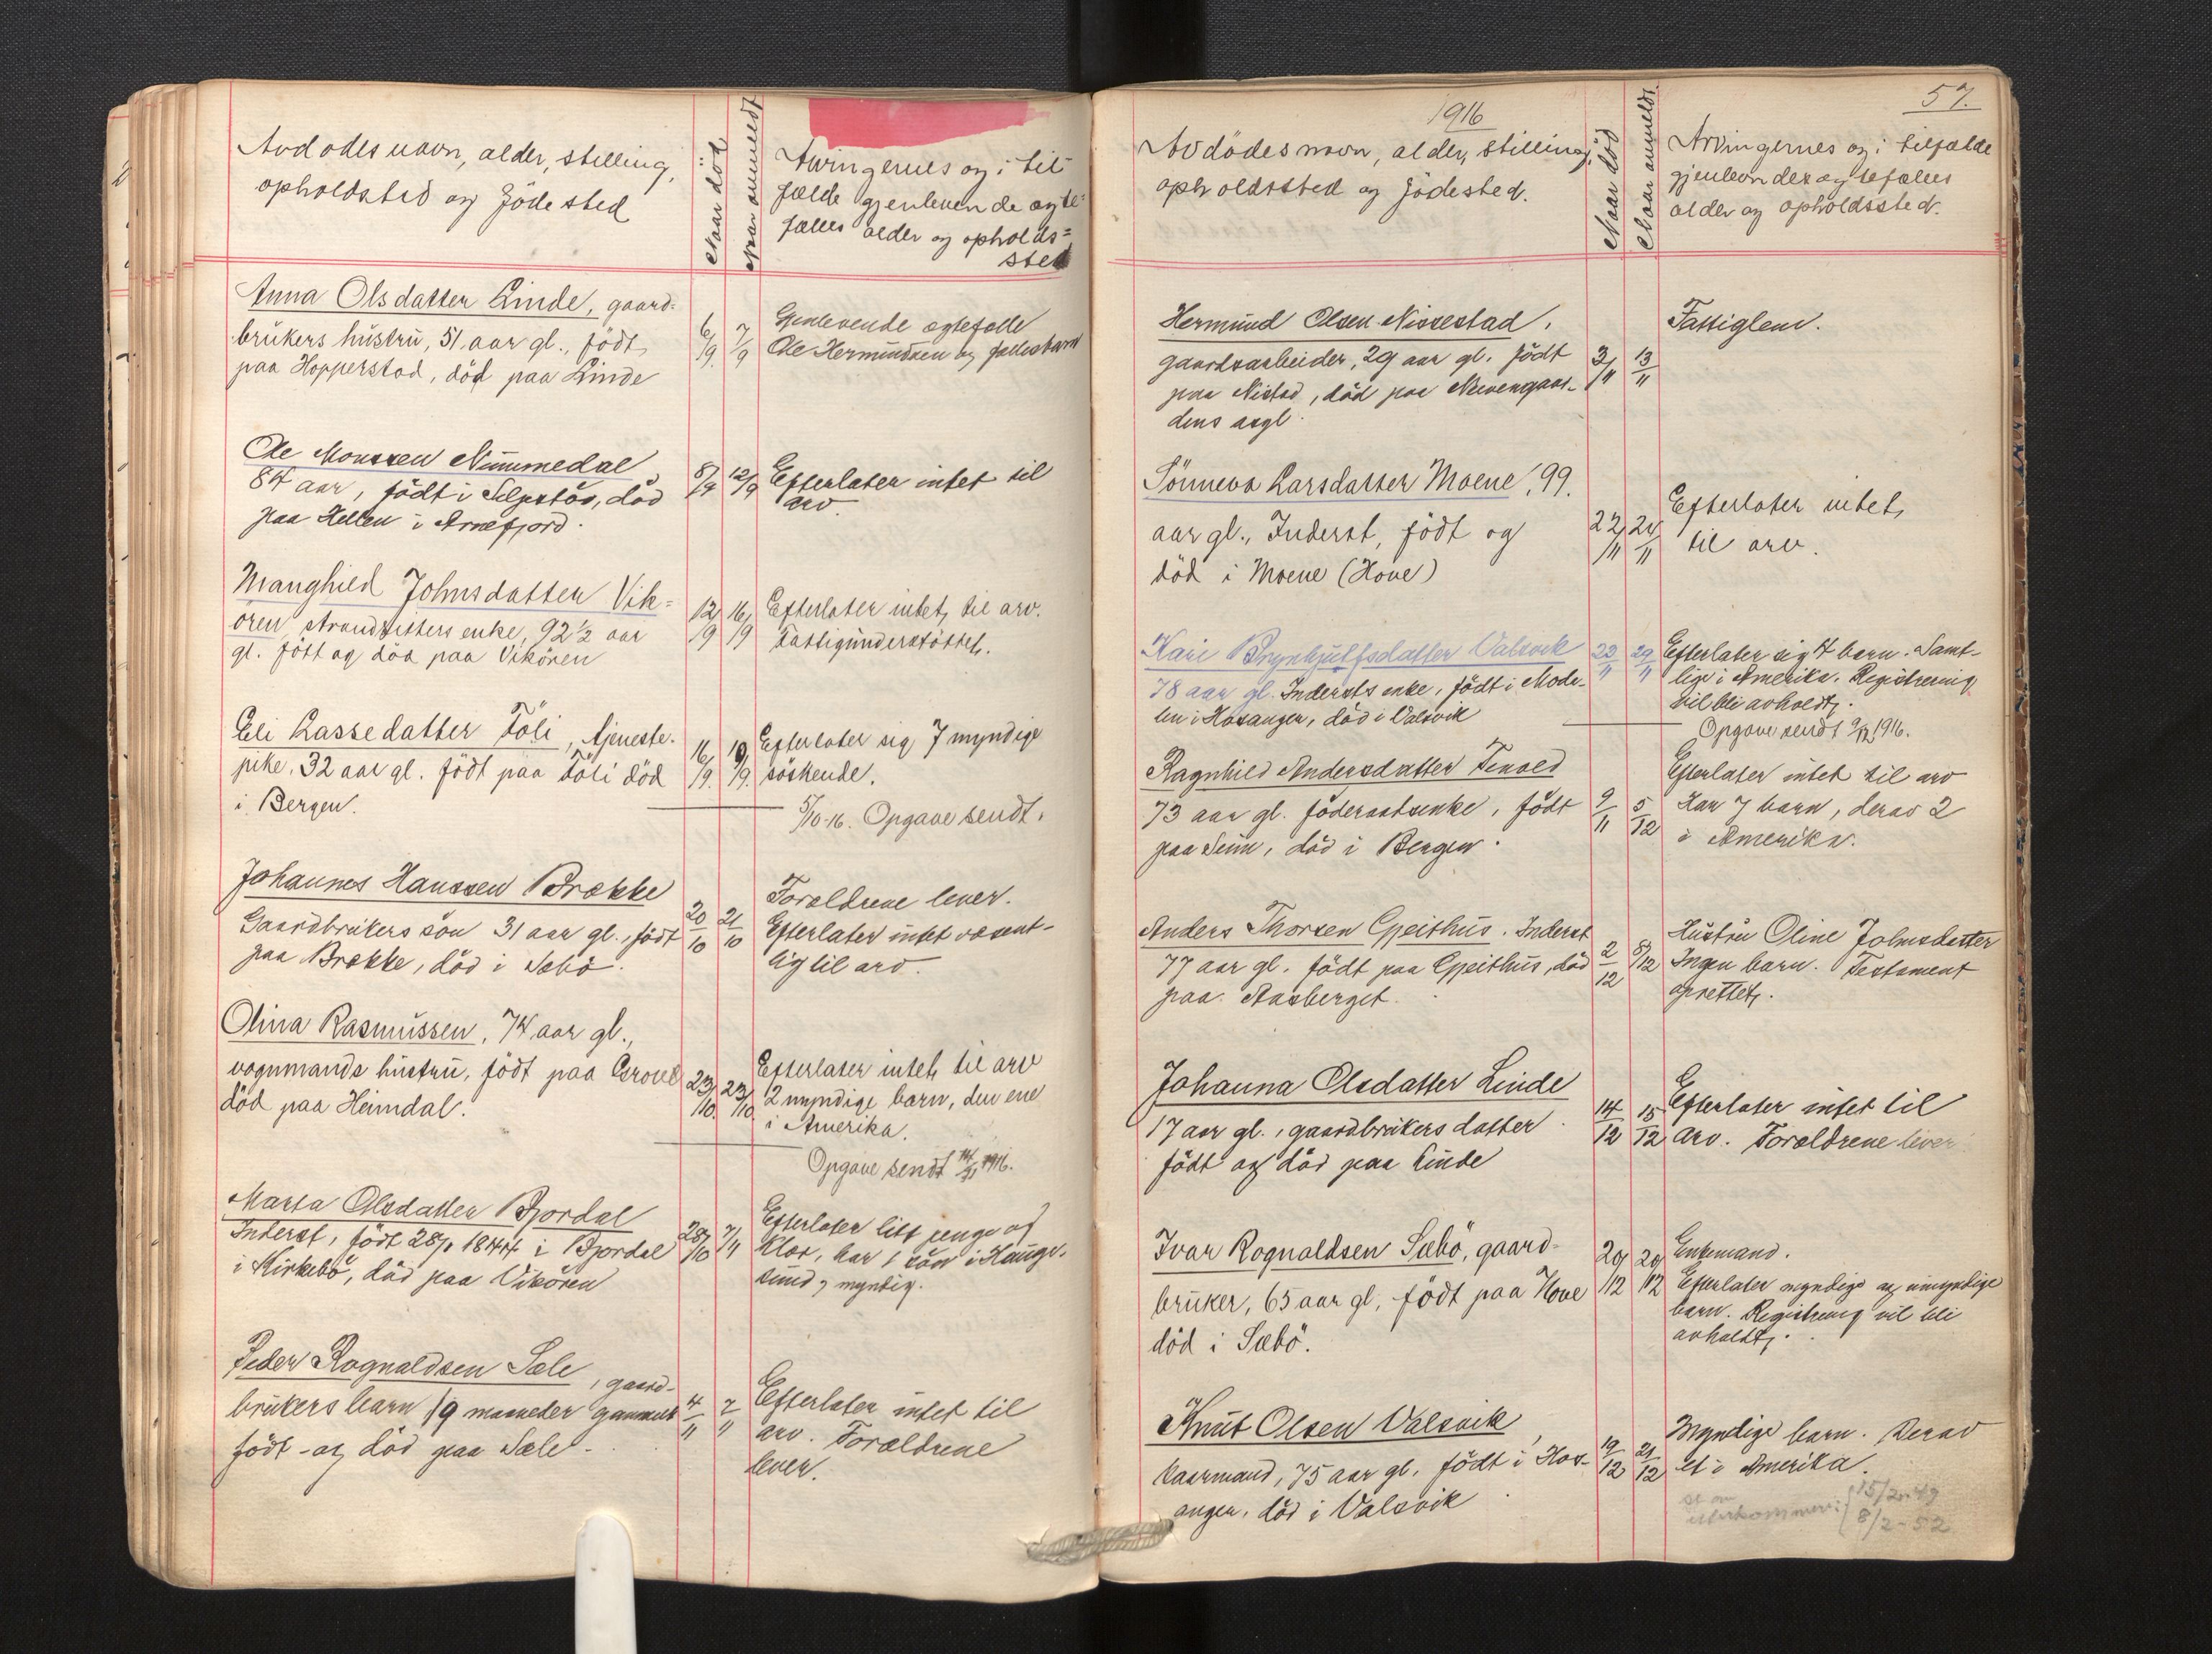 Avdødes navn, alder, stilling,
opholdsted og födested
Naar död
Naar anmeldt
Arvingernes og i til-
fælde gjenlevende ægte=
fælles alder og opholds=
sted
Anna Olsdatter Linde, gaard-
brukers hustru, 51 aar gl., födt
paa Hopperstad, död paa Linde
6/9. 7/9
Gjenlevende egtefelle
Ole Hermundsen og fællesbarn
Ole Monssen Nummedal
84 aar, födt i Selpstös, död
paa Hellen i Arnefjord.
8/9 12/9
Efterlater intet til
arv.
Manghild Johnsdatter Vik=
ören, Strandsitters enke, 92 1/2 aar
gl. født og död paa Vikören
12/9 16/9
Efterlater intet til arv.
Fattigunderstöttet.
Eli Lassedatter Föli, tjeneste-
pike, 32 aar gl. födt paa Föli död
i Bergen.
16/9. 19/9.
Efterlater sig 7 myndige
söskende.
5/10-16. Opgave sendt.
Johannes Hanssen Brække
Gaardbrukers sön 31 aar gl., födt
paa Brække, död i Sæbö.
20/10 21/10
Forældrene lever.
Efterlater intet væsent-
lig til arv.
Olina Rasmussen, 74 aar gl.,
vognmands hustru, födt paa Grove
död paa Heimdal.
23/10. 23/10.
Efterlater intet til arv
2 myndige barn, den ene
i Amerika.
Opgave sendt 14/11 1916.
Marta Olsdatter Bjordal
Inderst, födt 28/1 1844 i Bjordal
i Kirkebö, död paa Vikören
28/10 7/11
Efterlater litt penge og
klær, har 1 sön i Hauge-
sund, myndig.
Peder Rognaldsen Sæle, gaard-
brukers barn 19 maaneder gammelt
födt og död paa Sæle.
4/11 7/11
Efterlater intet til
arv. Forældrene
lever.
1916
57.
Avdödes navn, alder, stilling,
opholdssted og födested.
Naar död
Naar anmeldt.
Arvingernes og i tilfælde
gjenlevendes ægtefælles
alder og opholdssted.
Hermund Olsen Nissestad,
gaardsarbeider, 29 aar gl. födt
paa Nistad, död paa Nevengaar-
dens asyl.
3/11 13/11
Fattiglem.
Sönneva Larsdatter Moene, 99.
aar gl., Inderst, födt og
död i Moene (Hove)
22/11 24/11
Efterlater intet
til arv.
Kari Brynhjulfsdatter Valsvik
78 aar gl. Inderste enke, födt i Mode-
len i Hosanger, död i Valsvik
23/11 29/11
Efterlater sig 4 barn. Samt-
lige i Amerika. Registrering
vil bli avholdt.
Opgave sendt 9/12 1916.
Ragnhild Andersdatter Tenold
73 aar gl. föderaadsenke, födt
paa Seim, död i Bergen.
9/11 5/12
Efterlater intet til arv
Har 7 barn, derav 2
i Amerika.
Anders Thorsen Gjeithus. Inderst
77 aar gl. födt paa Gjeithus, död
paa Aasberget.
2/12 8/12
Hustru Oline Johnsdatter
Ingen barn. Testament
oprettet.
Johanna Olsdatter Linde
17 aar gl., gaardbrukers datter
födt og död paa Linde
14/12 15/12
Efterlater intet til
arv. Forældrene lever.
Ivar Rognaldsen Sæbö, gaard-
bruker, 65 aar gl, födt paa Hove
död i Sæbö.
20/12 20/12
Enkemand.
Efterlater myndige og umyndige
barn. Registrering vil bli
avholdt.
Knut Olsen Valsvik,
kaarmand, 75 aar gl. födt i Hos-
anger, död i Valsvik
19/12 21/12
Myndige barn. Derav
et i Amerika.
15/2-49
8/2-52